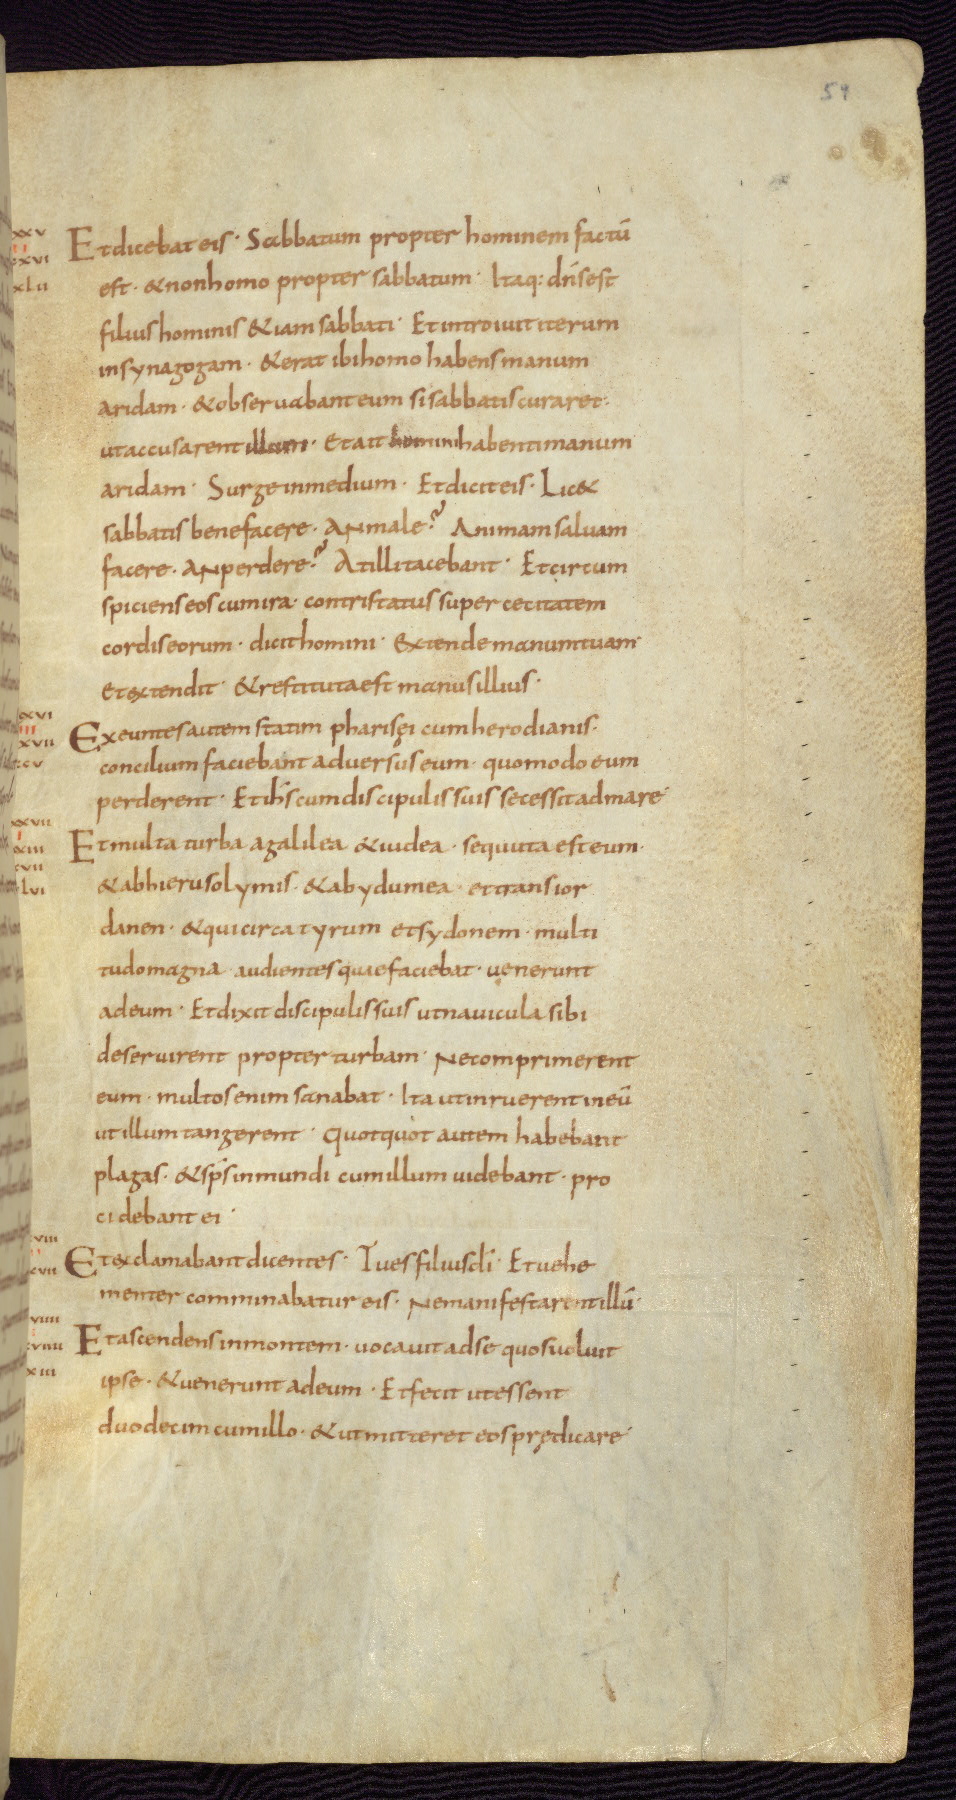 51
xxv
Et dicebat eis · Sabbatum propter hominem factū
xvi
est · & non homo propter sabbatum · Itaq: dn̄s est
xlii
filius hominis & iam sabbati · Et introiuit iterum
in synagogam · & erat ibi homo habens manum
aridam · & obseruabant eum si sabbatis curaret ·
ut accusarent illum · Et ait homini habenti manum
aridam · Surge in medium · Et dicit eis · Lic&
sabbatis bene facere · AN male? Animam saluam
facere · AN perdere? At illi tacebant · Et circum
spiciens eos cum ira · contristatus super cecitatem
cordis eorum · dicit homini · Extende manum tuam ·
Et extendit · & restituta est manus illius ·
xxvi
Exeuntes autem statim pharisęi cum herodianis ·
xvii
concilium faciebant aduersus eum · quomodo eum
cv
perderent · Et ih̄s cum discipulis suis secessit ad mare
xxvii
Et multa turba a galilea & iudea · sequuta est eum ·
xiii
& ab hierusolymis · & ab ydumea · et trans ior
lvi
danen · & qui circa tyrum et sydonem · multi
tudo magna audientes quae faciebat · uenerunt
ad eum · Et dixit discipulis suis ut nauicula sibi
deseruirent propter turbam · Ne comprimerent
eum · multos enim sanabat · Ita ut inruerent in eū
ut illum tangerent · Quotquot autem habebant
plagas · & sp̄s inmundi cum illum uidebant · pro
cidebant ei ·
viii
Et exclamabant dicentes · Tu es filius dī · Et uehe
xvii
menter comminabatur eis · Ne manifestarent illū ·
viiii
Et ascendens in montem · uocauit ad se quos uoluit
xiii
ipse · & uenerunt ad eum · Et fecit ut essent
duodecim cum illo · & ut mitteret eos prędicare